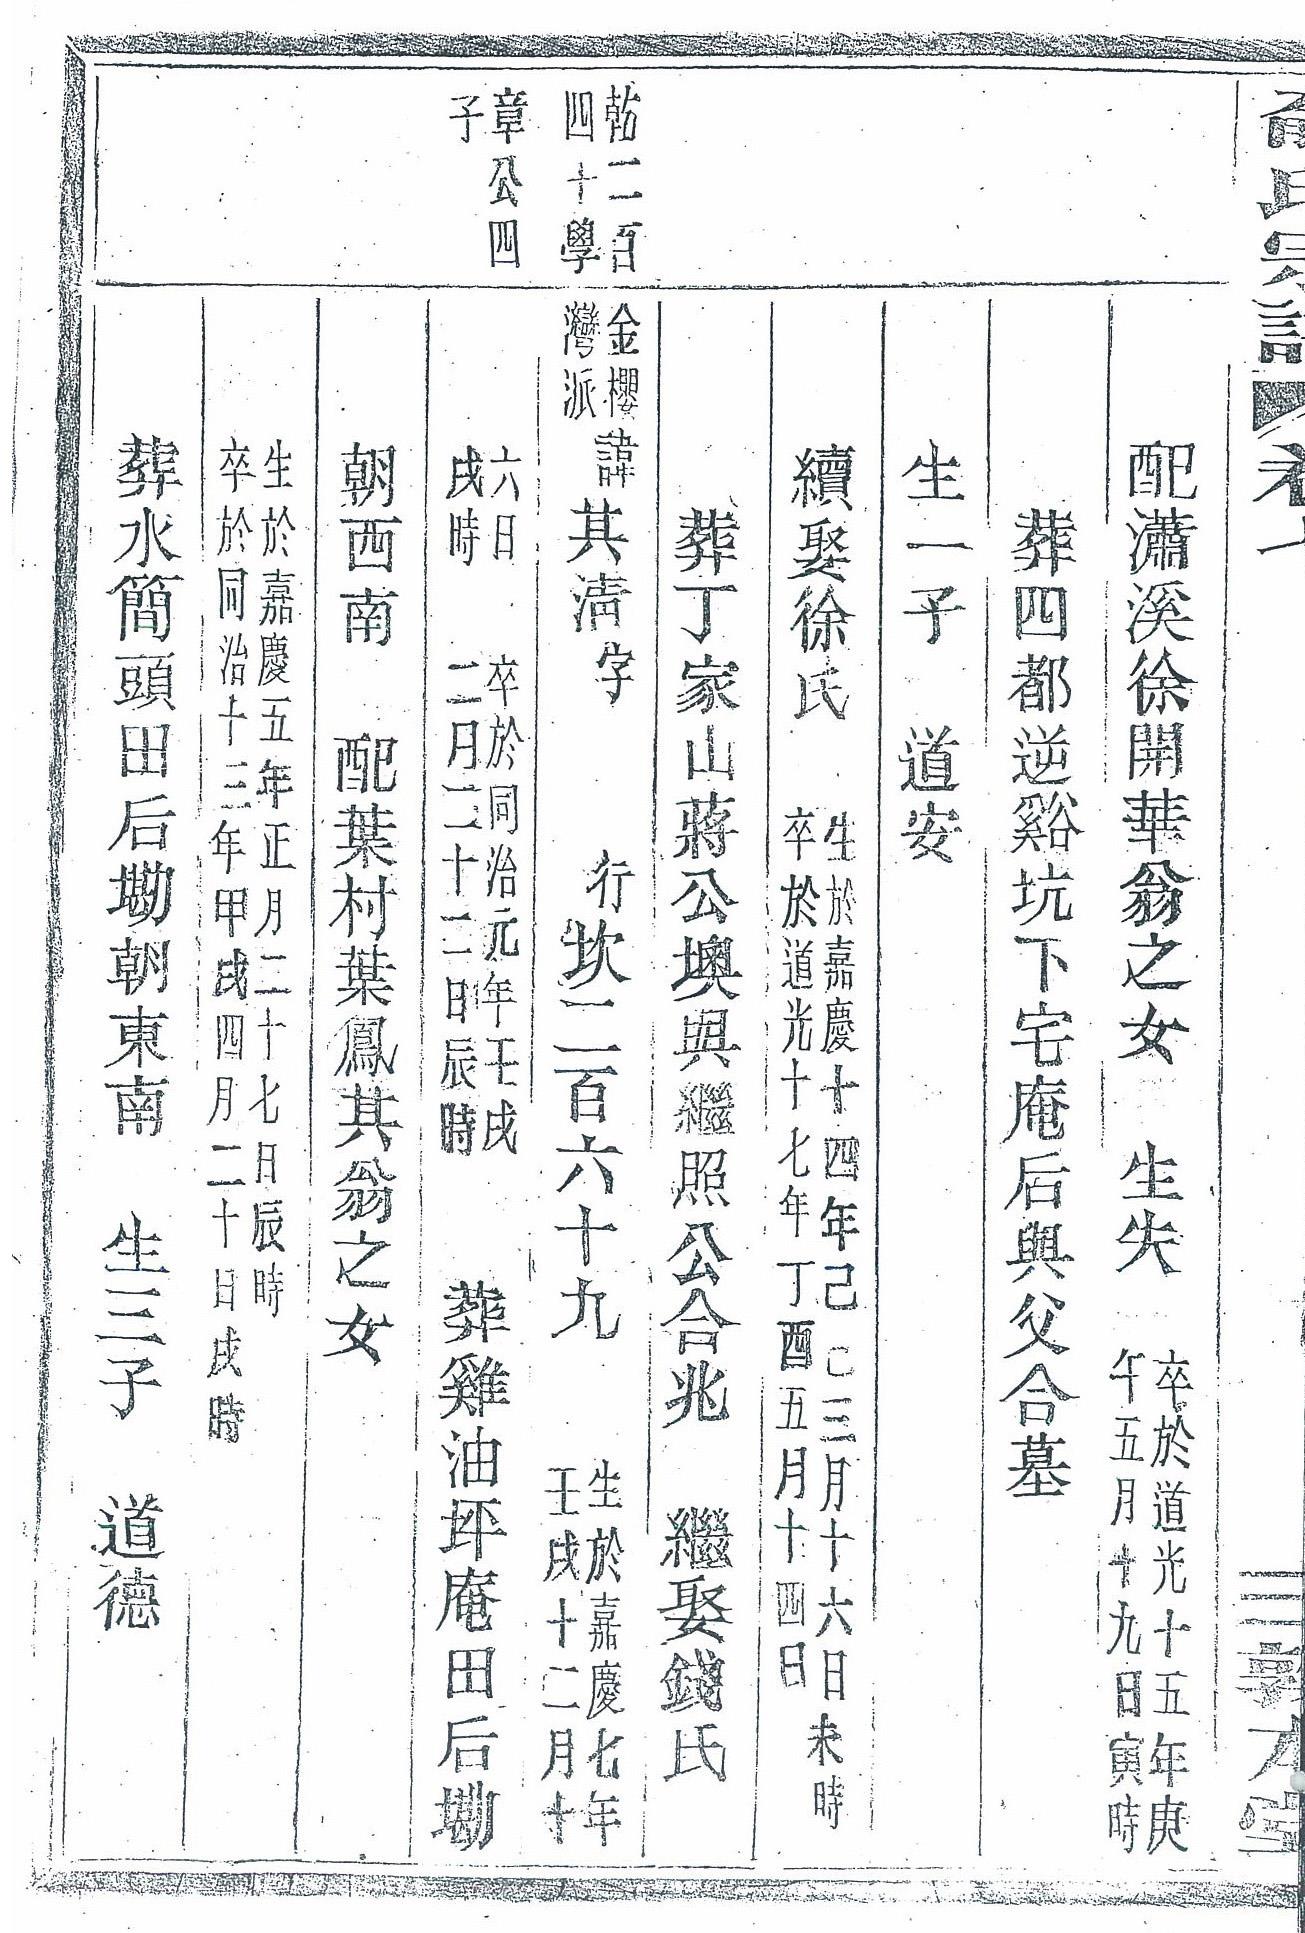 氏宗譜 卷
三 敦本堂
配瀟溪徐開華翁之女 生失 卒於道光十五年庚
午五月十九日寅時
葬四都逆谿坑下宅庵后與父合墓
生一子 道安
續娶徐氏 生於嘉慶十四年己〇三月十六日未時
卒於道光十七年丁酉五月十四日
葬丁家山蔣公墺與繼照公合兆 繼娶錢氏
乾二百
四十學
金櫻
灣派
諱其淸字 行坎二百六十九 生於嘉慶七年
壬戌十二月十
章公四
子
六日 卒於同治元年壬戌
戌時 二月二十二日辰時
葬雞油坪庵田后墈
朝西南 配葉村葉鳳其翁之女
生於嘉慶五年正月二十七日辰時
卒於同治十三年甲戌四月二十日戌時
葬水簡頭田后墈朝東南 生三子 道德